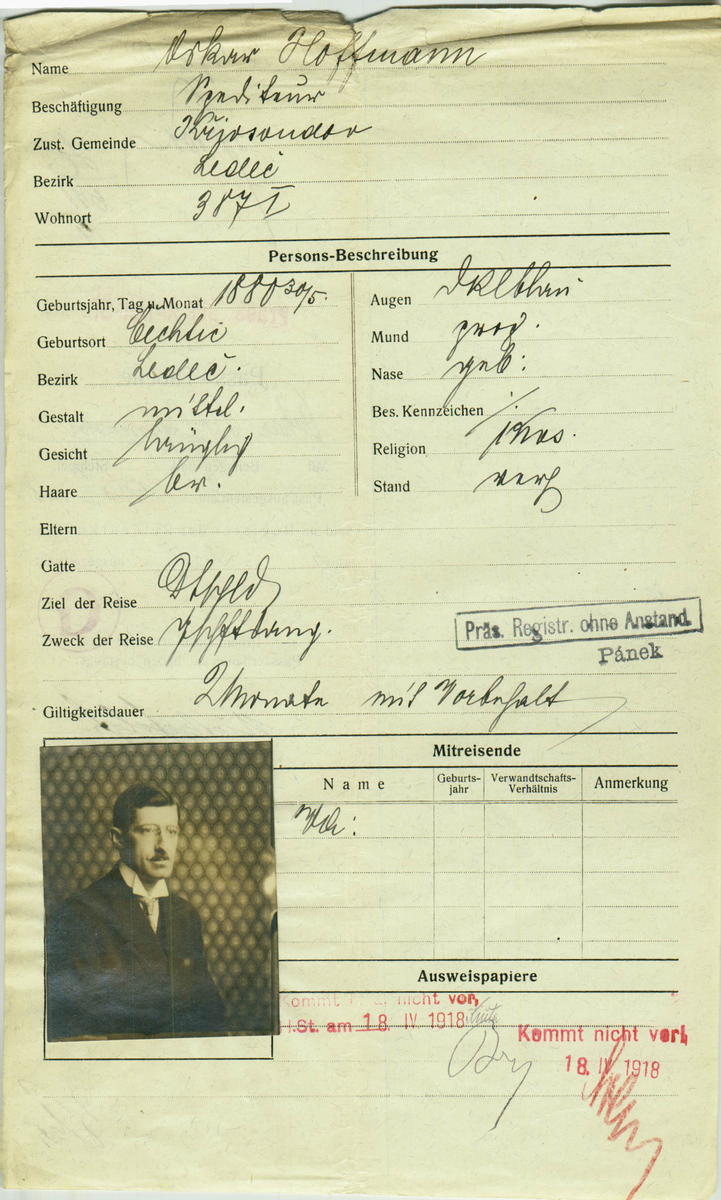 Name Oskar Hoffmann
Beschäftigung Spediteur
Zust. Gemeinde
Bezirk Ledeč
Wohnort 387 I
Persons-Beschreibung
Geburtsjahr, Tag u. Monat 1880 30/5.
Geburtsort Čechtic
Bezirk Ledeč.
Gestalt mittel.
Gesicht länglich
Haare br.
Augen dklblau
Mund prop.
Nase geb:
Bes. Kennzeichen ./.
Religion
Stand verh
Eltern
Gatte
Ziel der Reise Dtschld
Zweck der Reise
Präs. Registr. ohne Anstand.
Pánek
Giltigkeitsdauer 2 Monate mit Vorbehalt
Mitreisende
Name
Geburts-
jahr
Verwandtschafts-
Verhältnis
Anmerkung
Ausweispapiere
Kommt nicht vor,
St. am 18. IV 1918
Kommt nicht vor!
18. IV 1918